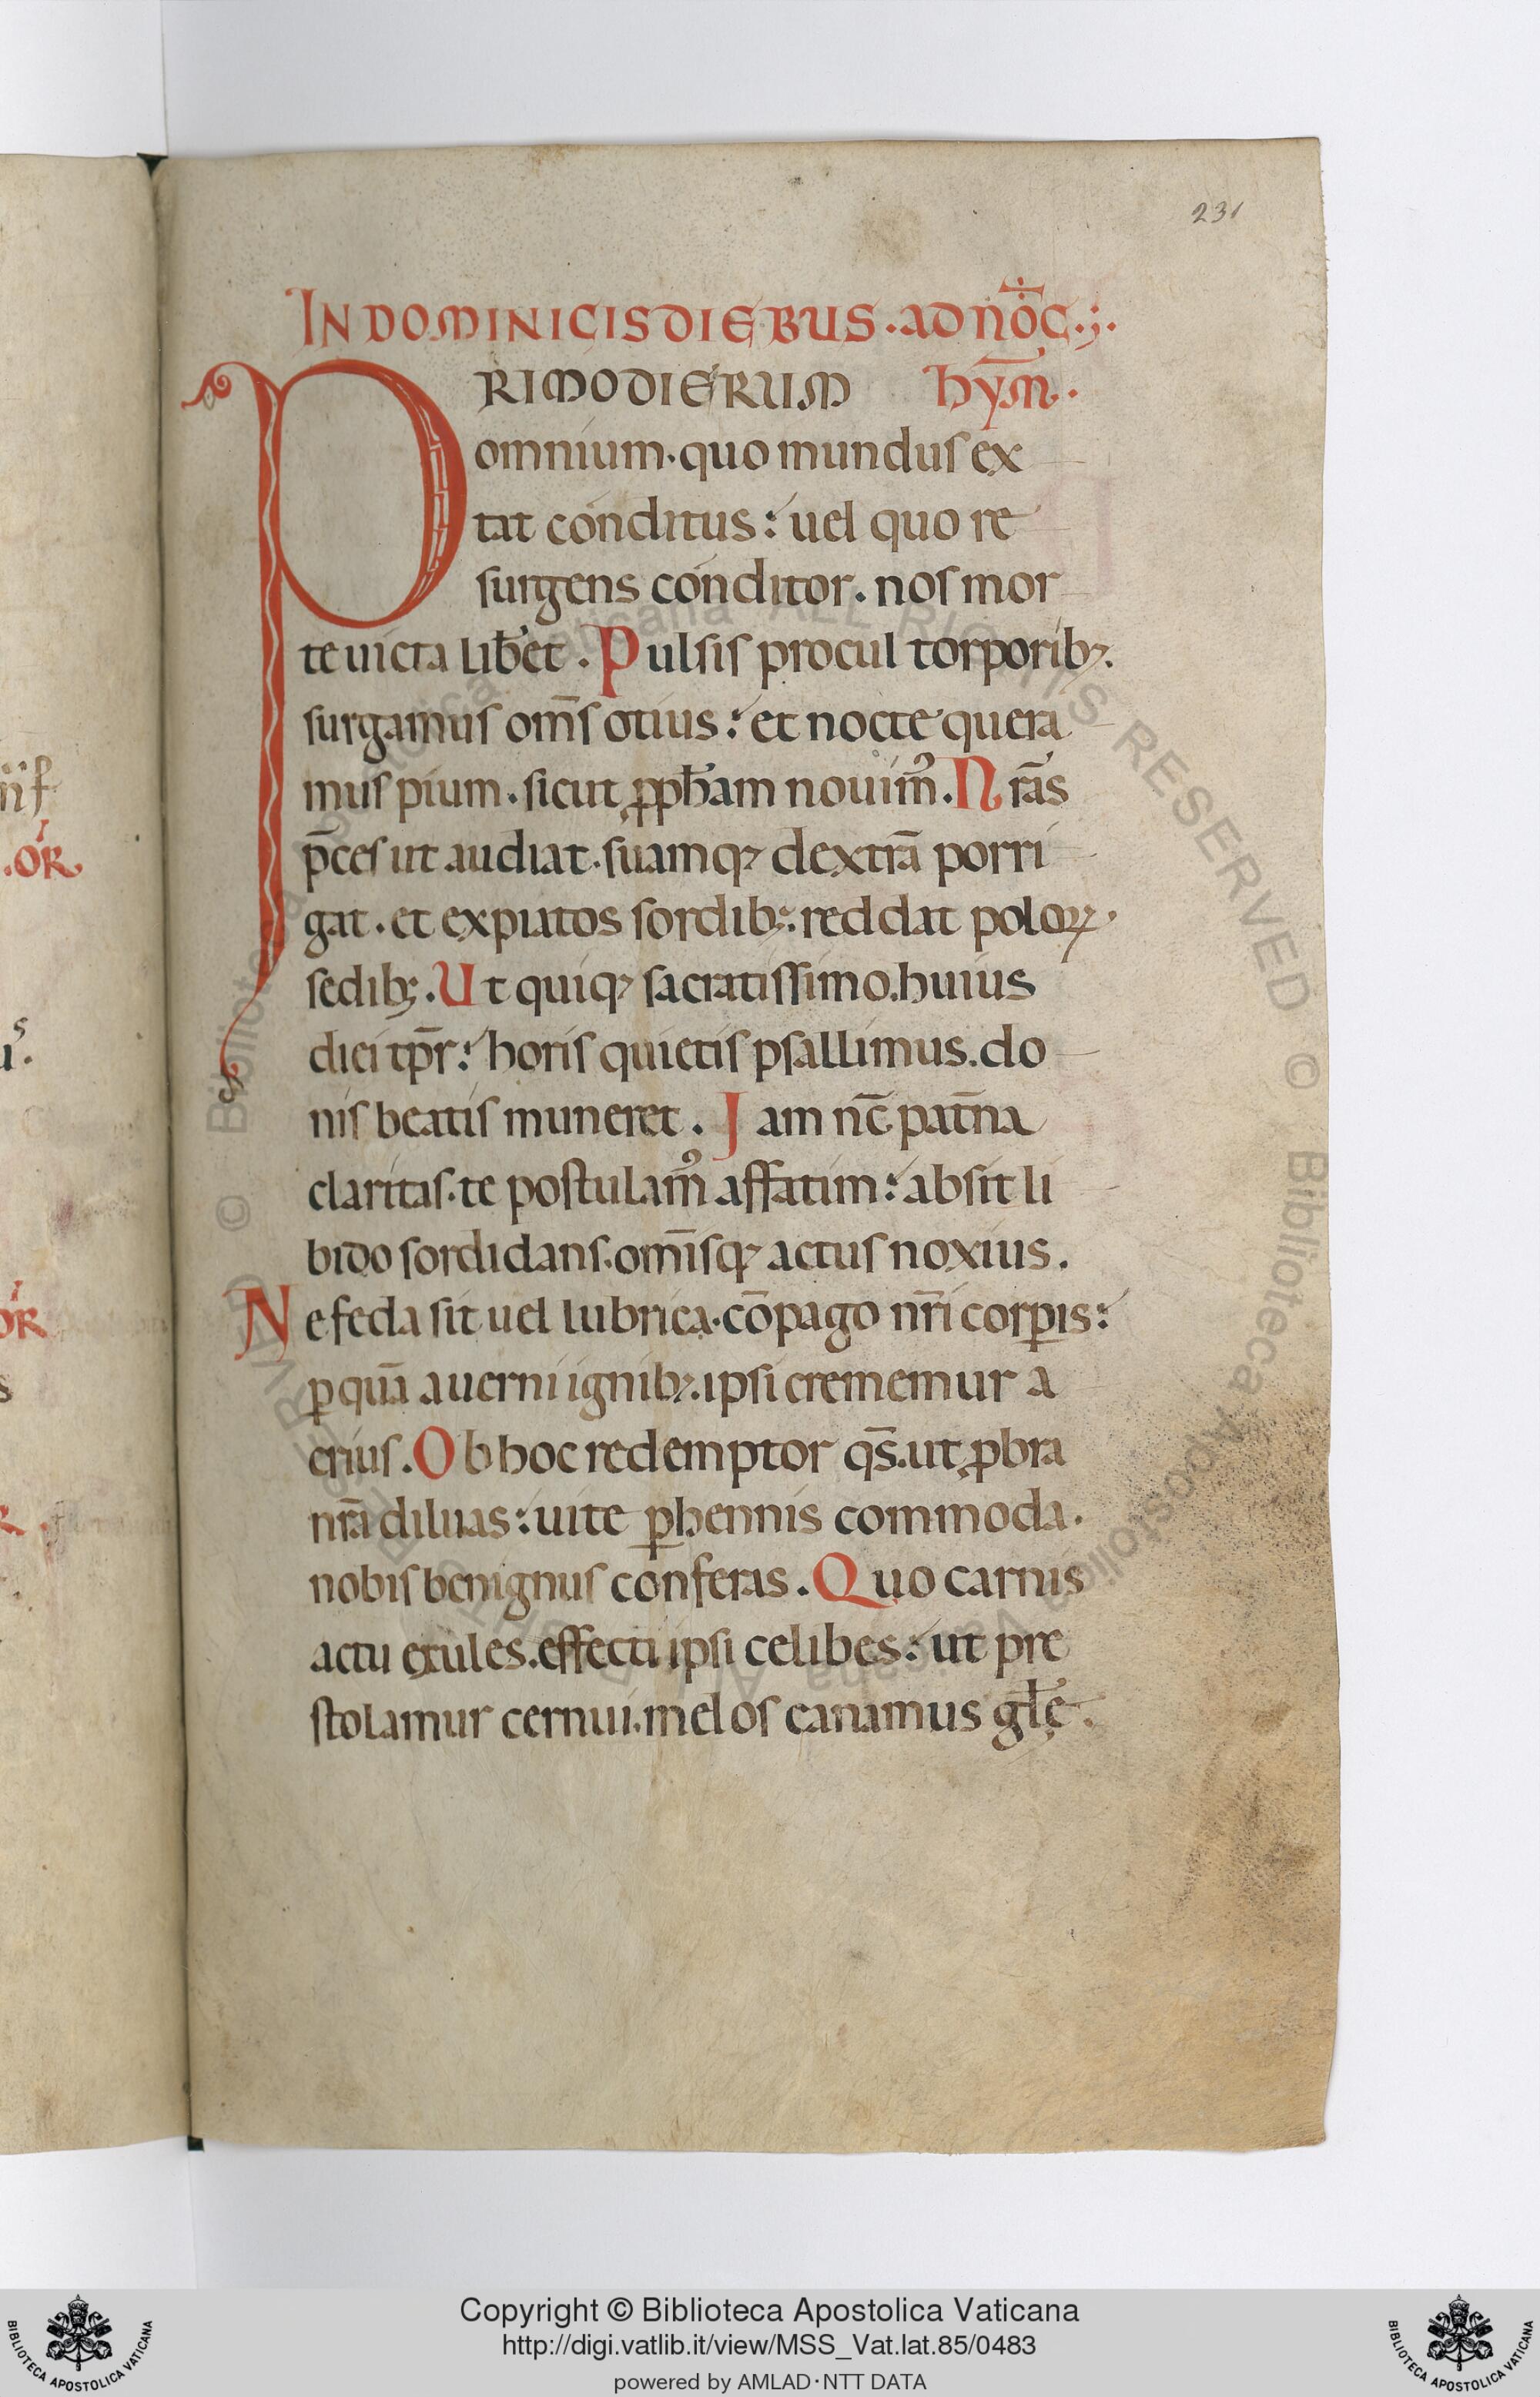 231
IN DOMINICIS DIEBUS. AD NOC̄.;.
PRIMO DIERUM hȳm̄.
omnium. quo mundus ex
tat conditus: uel quo re
surgens conditor. nos mor
te uicta lib̄et. Pulsis procul torporib;.
surgamus om̄s otius: et nocte quera
mus pium. sicut ꝓph̄am nouim᷒. Nr̄as
p̄ces ut audiat. suamq; dextrā porri
gat. et expiatos sordib;. reddat poloꝝ.
sedib;. Ut quiq; sacratissimo. huius
diei tp̄r: horis quietis psallimus. do
nis beatis muneret. Jam nc̄ pat̄na
claritas. te postulam᷒ affatim: absit li
bido sordidans. om̄isq; actus noxius.
Ne feda sit uel lubrica. cōpago nr̄i corꝑis:
ꝑ quā auerni ignib;. ipsi crememur a
crius. Ob hoc redemptor qs̄. ut ꝓbra
nr̄a diluas: uite ꝑhennis commoda.
nobis benignus conferas. Quo carnis
actu exules. effecti ipsi celibes: ut pre
stolamur cernui. melos canamus gl̄ę.
Copyright © Biblioteca Apostolica Vaticana
http://digi.vatlib.it/view/MSS_Vat.lat.85/0483
powered by AMLAD·NTT DATA
BIBLIOTECA APOSTOLICA VATICANA
BIBLIOTECA APOSTOLICA VATICANA